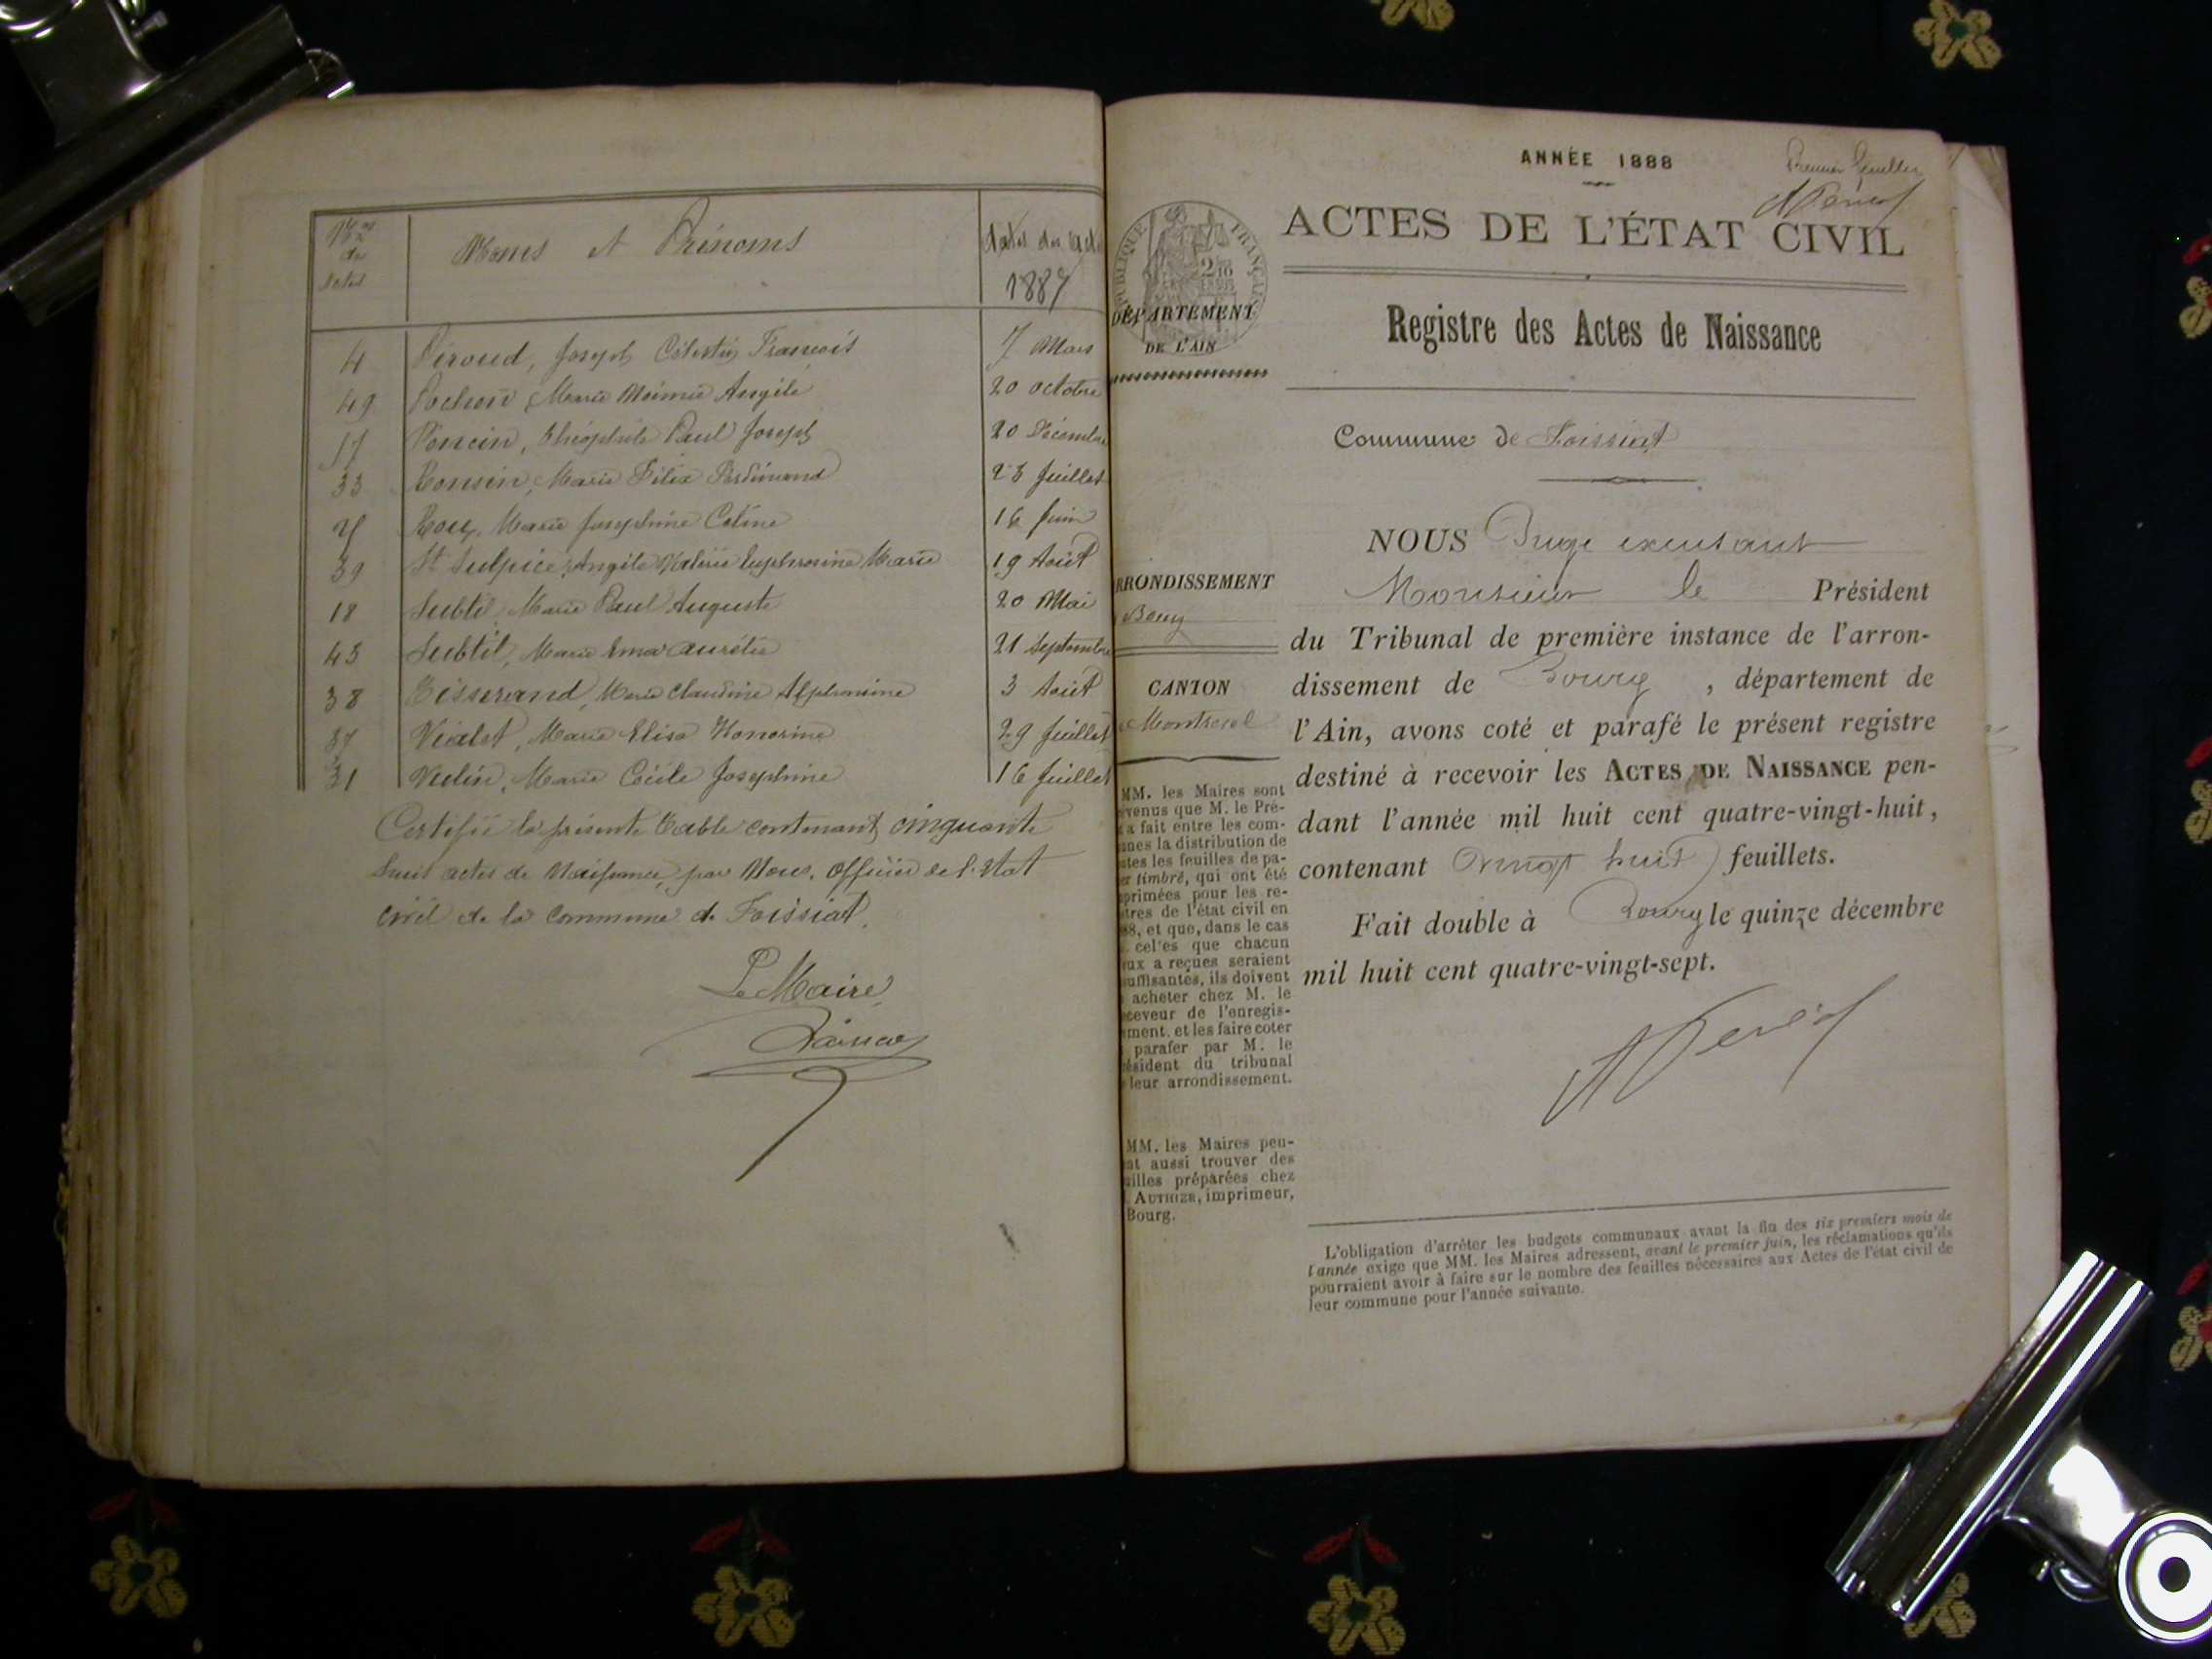 Nos des Actes
Noms et Prénoms
Dates des Actes 1887
4 Piroud, Joseph Célestin François 7 Mars
49 Pochon, Marie Noémie Angèle 20 octobre
57 Poncin, Théophile Paul Joseph 20 Décembre
33 Ronsin, Marie Félix Ferdinand 23 Juillet
Roux, Marie Joséphine Céline 16 Juin
39 St Sulpice, Angèle Valérie Euphrosine Marie 19 Août
18 Subtil, Marie Paul Auguste 20 Mai
43 Subtil, Marie Ema aurélie 21 Septembre
38 Tisserand, Marie Claudine Alphonsine 3 Août
37 Vialet, Marie Elisa Honorine 29 Juillet
31 Vieilin, Marie Cécile Joséphine 16 Juillet
Certifié la présente Table contenant cinquante
huit actes de Naissance, par Nous, officier de l'Etat
civil de la commune de Foissiat.
Le Maire,
ANNÉE 1888
Premier feuillet
ACTES DE L'ÉTAT CIVIL
Registre des Actes de Naissance
Commune de Foissiat
NOUS Juge excusant
Monsieur le Président
du Tribunal de première instance de l'arron-
dissement de Bourg, département de
l'Ain, avons coté et parafé le présent registre
destiné à recevoir les ACTES DE NAISSANCE pen-
dant l'année mil huit cent quatre-vingt-huit,
contenant vingt huit feuillets.
Fait double à Bourg le quinze décembre
mil huit cent quatre-vingt-sept.
L'obligation d'arrêter les budgets communaux avant la fin des six premiers mois de
l'année exige que MM. les Maires adressent, avant le premier juin, les réclamations qu'ils
pourraient avoir à faire sur le nombre des feuilles nécessaires aux Actes de l'état civil de
leur commune pour l'année suivante.
RÉPUBLIQUE FRANÇAISE
DÉPARTEMENT
DE L'AIN
RRONDISSEMENT
Bourg
CANTON
Montrevel
MM. les Maires sont
venus que M. le Pré-
a fait entre les com-
nes la distribution de
tes les feuilles de pa-
er timbré, qui ont été
primées pour les re-
tres de l'état civil en
88, et que, dans le cas
celles que chacun
ux a reçues seraient
uffisantes, ils doivent
acheter chez M. le
ceveur de l'enregis-
ment, et les faire coter
parafer par M. le
ésident du tribunal
leur arrondissement.
MM. les Maires peu-
nt aussi trouver des
uilles préparées chez
AUTHIER, imprimeur,
Bourg.